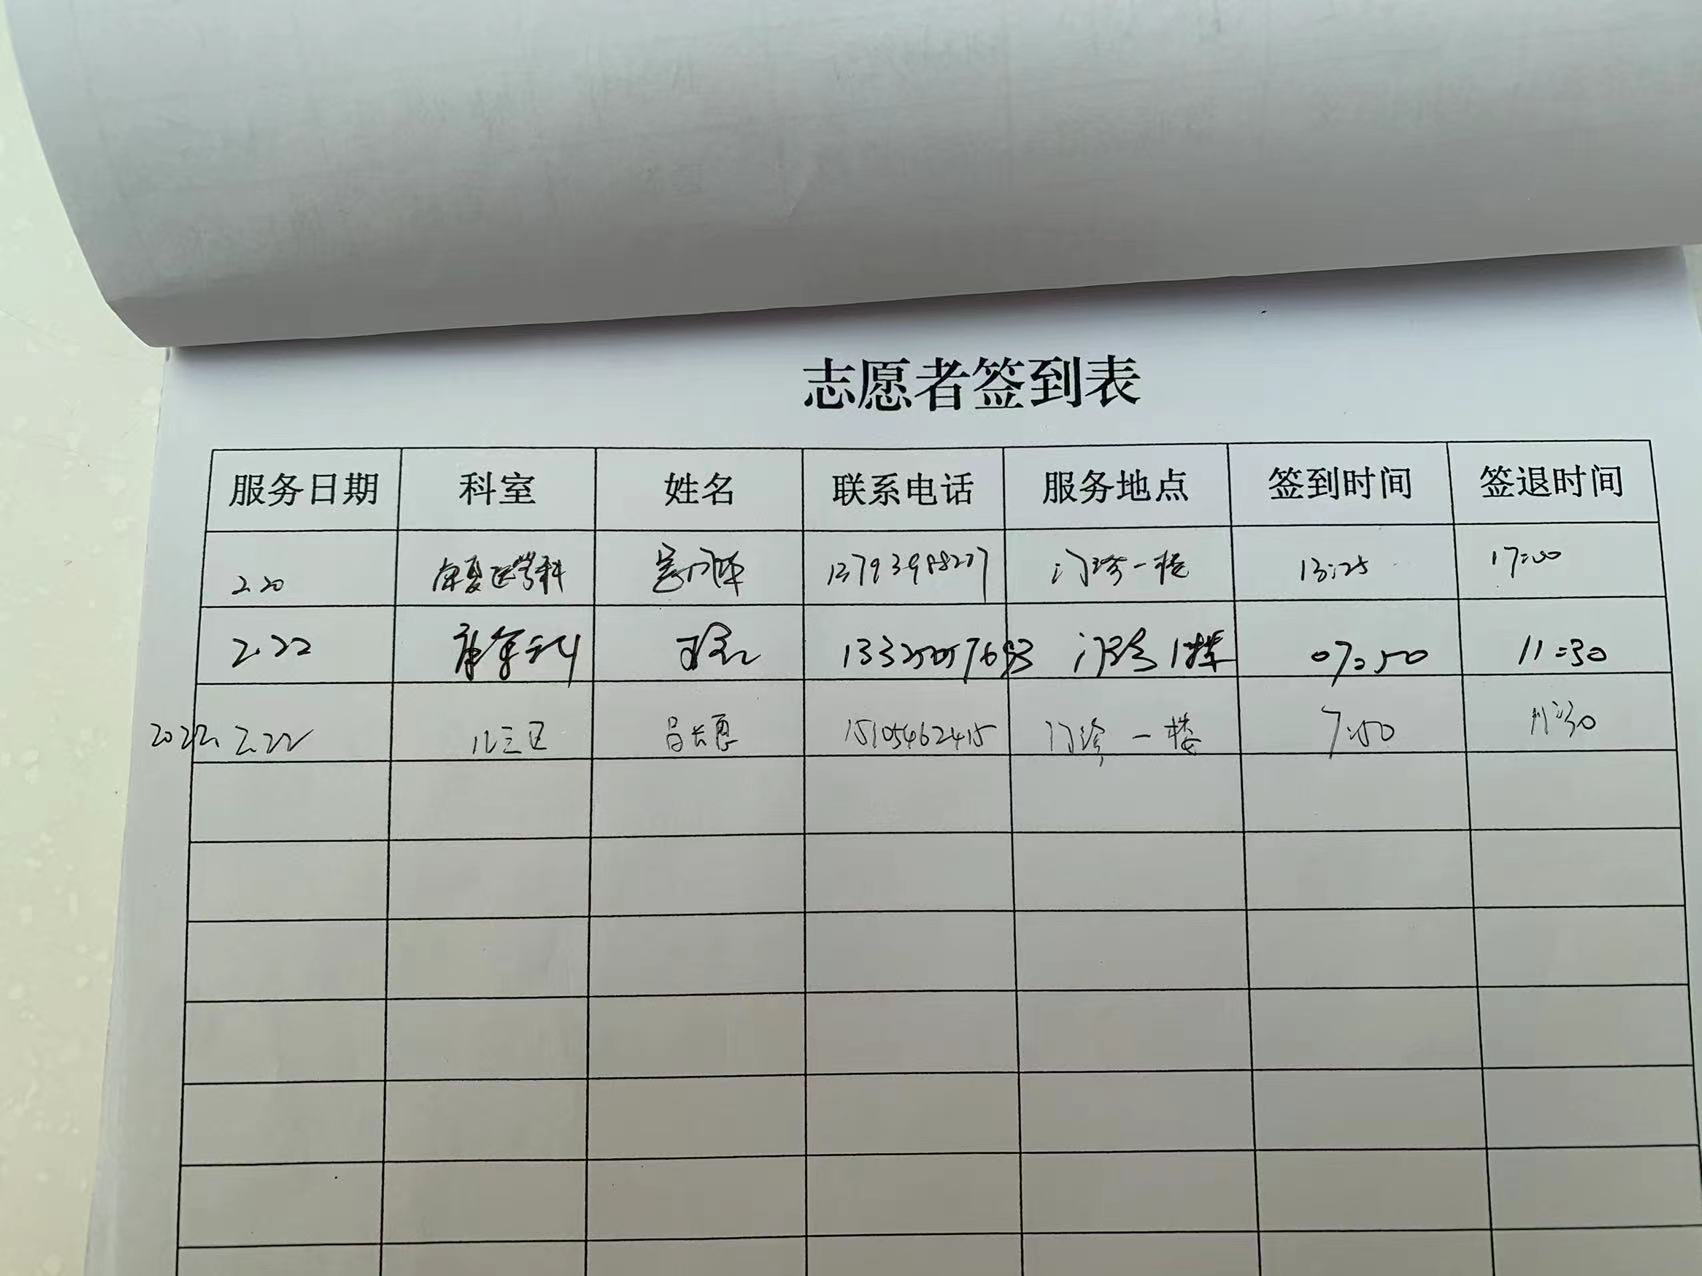 志愿者签到表
服务日期 科室 姓名 联系电话 服务地点 签到时间 签退时间
2.20 康复医学科 门诊一楼 13:25 17:00
2.22 门诊1楼 07:50 11:30
2022.2.22 儿三区 吕长恩 15105462415 门诊一楼 7:50 11:30